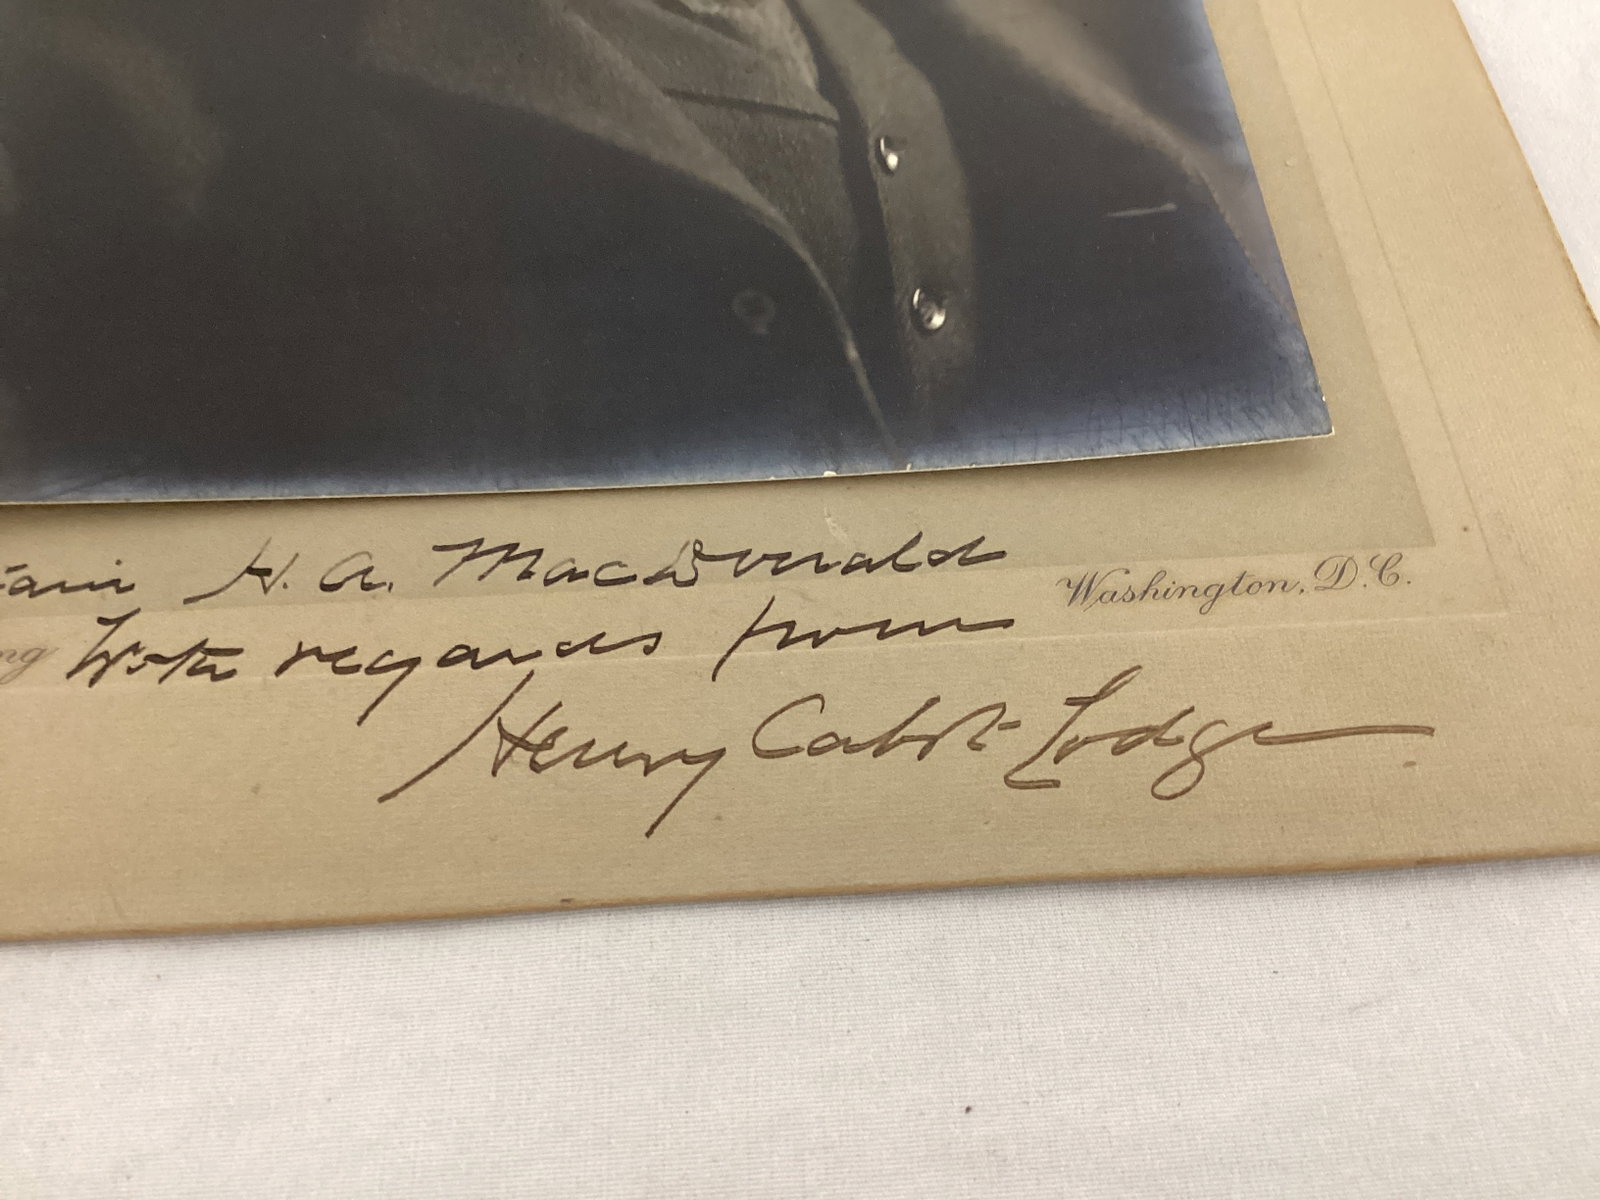 tain H. A. MacDonald
Washington, D.C.
ng
With regards from
Henry Cabot Lodge